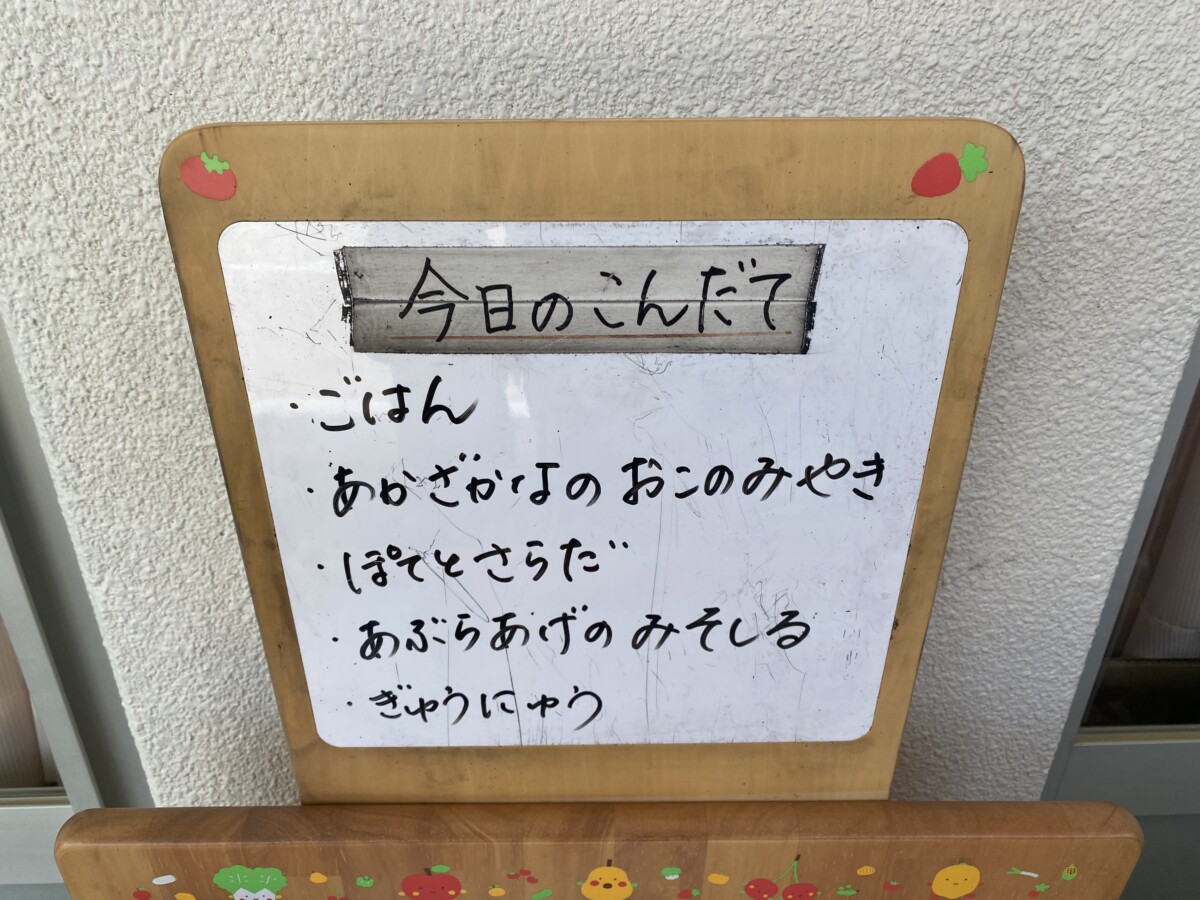 今日のこんだて
・ごはん
・あかざかなの おこのみやき
・ぽてとさらだ
・あぶらあげの みそしる
・ぎゅうにゅう